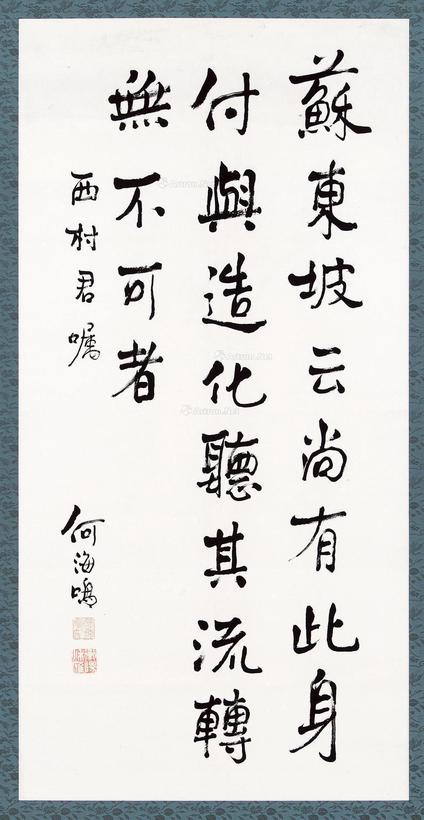 蘇東坡云尚有此身
付與造化聽其流轉
無不可者
西村君囑
何海鳴